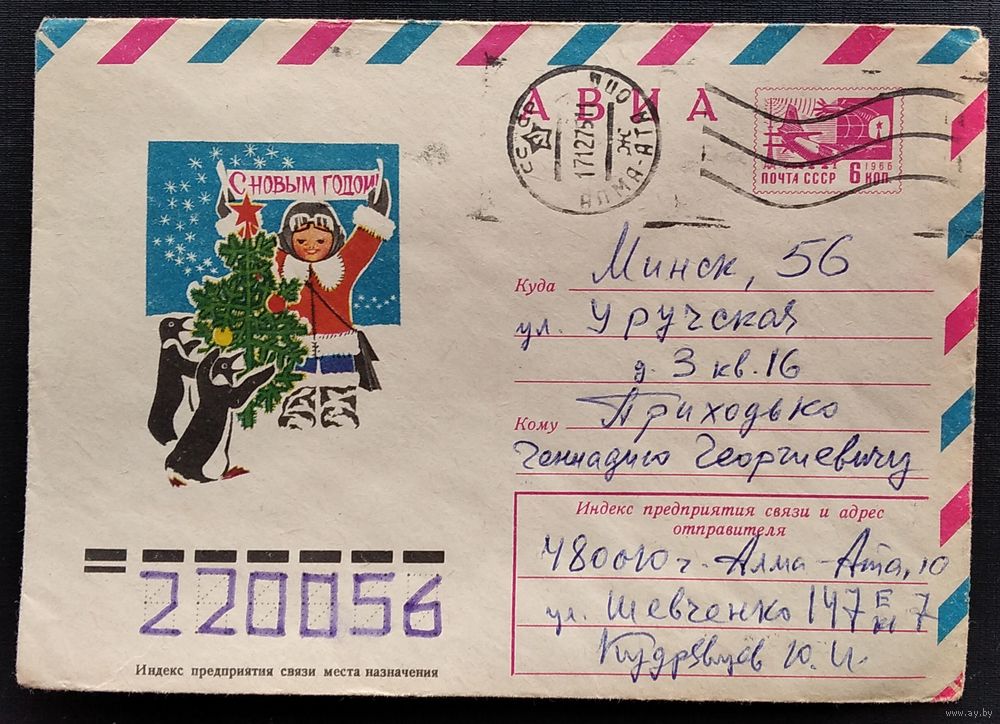 АВИА
СССР АЛМА-АТА ПЖ
17127511
1966
ПОЧТА СССР 6 КОП
С НОВЫМ ГОДОМ!
Куда Минск, 56
ул. Уручская
д. 3 кв. 16
Кому Приходько
Геннадию Георгиевичу
Индекс предприятия связи и адрес
отправителя
480010 г. Алма-Ата, 10
ул. Шевченко 147 Е
кв 7
Кудрявцев Ю. И.
220056
Индекс предприятия связи места назначения
www.ay.by